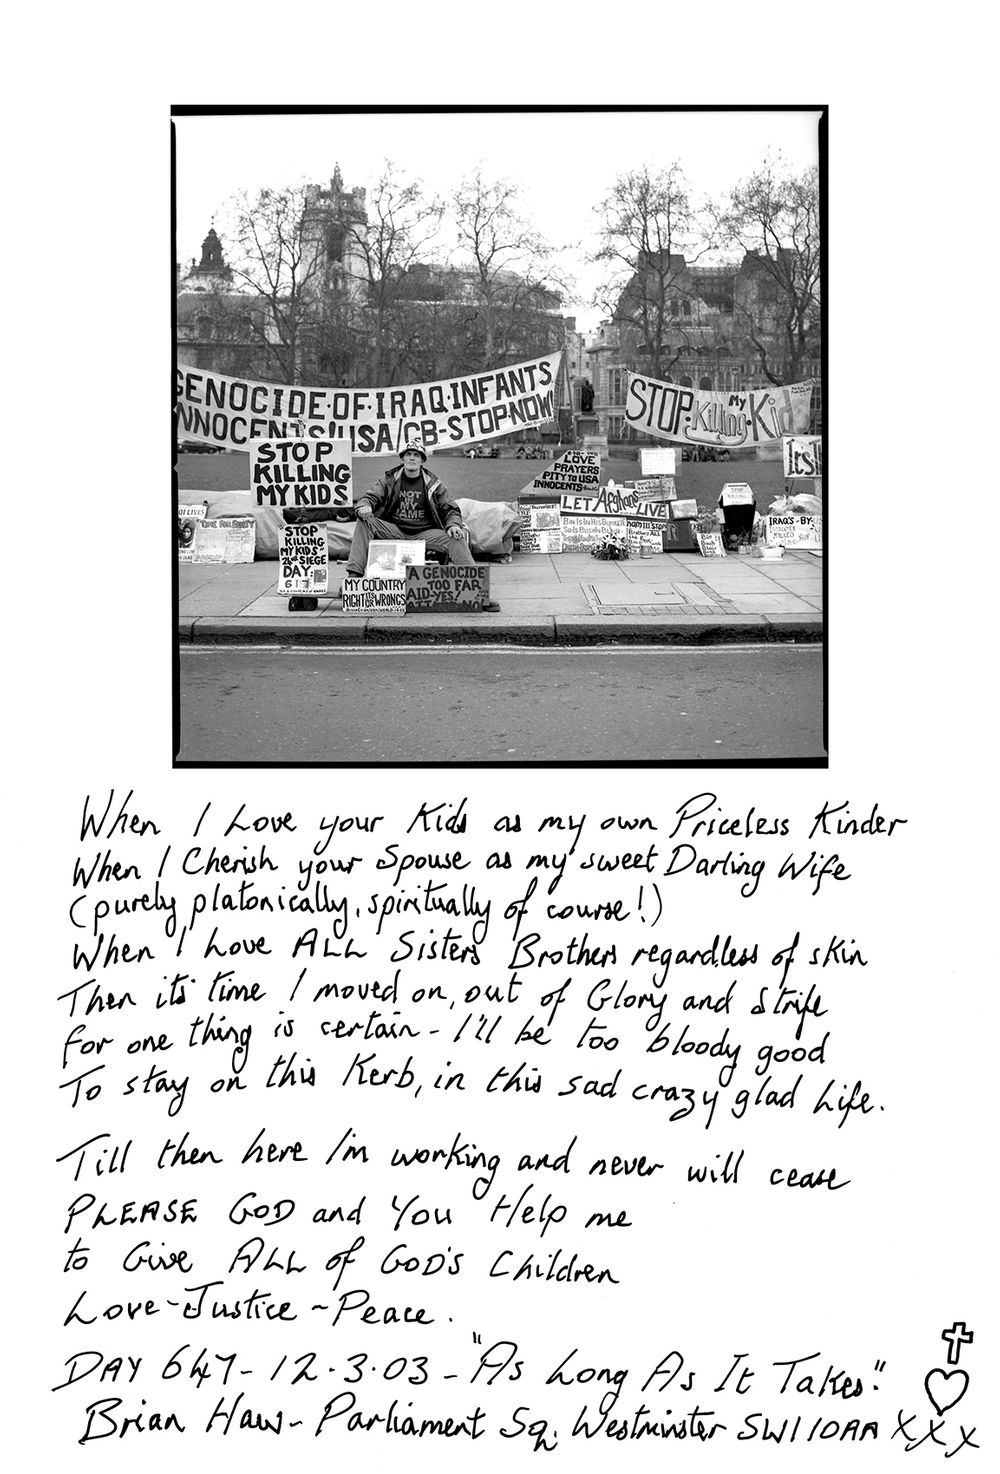 GENOCIDE·OF·IRAQ·INFANTS
NNOCENTS!USA/GB-STOP·NOW!
STOP My Killing Kid
STOP
KILLING
MY KIDS
LOVE
PRAYERS
PITY TO USA
INNOCENTS
Its!
LET Afghans LIVE
QI LIVES
TIME FOR
"STOP
KILLING
MY KIDS"
SIEGE
DAY:
617
NOT
IN MY
NAME
MY COUNTRY
RIGHT ITS OR WRONGS
A GENOCIDE
TOO FAR
AID-YES!
ATTACK-NO!
STOP
IRAQ'S-BY-
When I Love your Kids as my own Priceless Kinder
When I Cherish your Spouse as my sweet Darling Wife
(purely platonically, spiritually of course!)
When I Love ALL Sisters Brothers regardless of skin
Then its time I moved on, out of Glory and Strife
for one thing is certain - I'll be too bloody good
To stay on this Kerb, in this sad crazy glad Life.
Till then here I'm working and never will cease
PLEASE GOD and You Help me
to Give ALL of GOD'S Children
Love-Justice ~ Peace.
DAY 647- 12.3.03 - "As Long As It Takes."
Brian Haw - Parliament Sq. Westminster SW1 10AA XXX